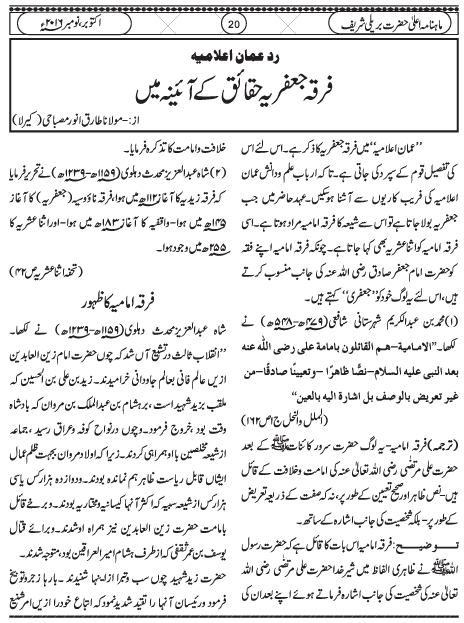 ماہنامہ اعلیٰ حضرت بریلی شریف
20
اکتوبر، نومبر ۲۰۱۶ء
رد عمان اعلامیہ
فرقہ جعفریہ حقائق کے آئینہ میں
از:- مولانا طارق انور مصباحی (کیرلا)
’’عمان اعلامیہ‘‘ میں فرقہ جعفریہ کا ذکر ہے۔ اس لئے اس
کی تفصیل قوم کے سپرد کی جاتی ہے۔ تاکہ ارباب علم و دانش عمان
اعلامیہ کی فریب کاریوں سے آشنا ہو سکیں۔ عہد حاضر میں جب
جعفریہ بولا جاتا ہے تو اس سے شیعہ کا فرقہ امامیہ مراد ہوتا ہے۔ اسی
فرقہ امامیہ کو اثنا عشریہ بھی کہا جاتا ہے۔ چونکہ فرقہ امامیہ اپنے فقہ
کو حضرت امام جعفر صادق رضی اللہ عنہ کی جانب منسوب کرتے
ہیں، اس لئے یہ لوگ خود کو ’’جعفری‘‘ کہتے ہیں۔
(۱) محمد بن عبد الکریم شہرستانی شافعی (۴۷۹ھ-۵۴۸ھ) نے
لکھا۔ ’’الامامیة-هم القائلون بامامة علی رضی الله عنه
بعد النبی علیه السلام-نصًّا ظاهرًا-وتعیینًا صادقًا-من
غیر تعریض بالوصف بل اشارة الیه بالعین‘‘
(الملل والنحل ج۱ص۱۶۲)
(ترجمہ) فرقہ امامیہ-یہ لوگ حضرت سرور کائنات ﷺ کے بعد
حضرت علی مرتضی رضی اللہ تعالیٰ عنہ کی امامت و خلافت کے قائل
ہیں-نص ظاہر اور صحیح تعیین کے طور پر، نہ کہ صفت کے ذریعہ تعریض
کے طور پر-بلکہ شخصیت کی جانب اشارہ کے ساتھ۔
توضیح: فرقہ امامیہ اس بات کا قائل ہے کہ حضرت رسول اللہ
ﷺ نے ظاہری الفاظ میں شیر خدا حضرت علی مرتضی رضی اللہ
تعالیٰ عنہ کی شخصیت کی جانب اشارہ فرماتے ہوئے اپنے بعد ان کی
خلافت و امامت کا تذکرہ فرمایا۔
(۲) شاہ عبد العزیز محدث دہلوی (۱۱۵۹ھ-۱۲۳۹ھ) نے تحریر فرمایا
کہ فرقہ زیدیہ کا آغاز ۱۱۲ھ میں ہوا، فرقہ ناؤوسیہ (جعفریہ) کا آغاز
۱۴۵ھ میں ہوا-واقفیہ کا آغاز ۱۸۳ھ میں ہوا-اور اثنا عشریہ کا
۲۵۵ھ میں وجود ہوا۔
(تحفہ اثنا عشریہ ص۴۲)
فرقہ امامیہ کا ظہور
شاہ عبد العزیز محدث دہلوی (۱۱۵۹ھ-۱۲۳۹ھ) نے لکھا۔
’’انقلاب ثالث در تشیع آں شد کہ چوں حضرت امام زین العابدین
ازیں عالم فانی بعالم جاودانی خرامیدند۔ زید بن علی بن الحسین کہ
ملقب بزید شہید است، بر ہشام بن عبد الملک بن مروان کہ بادشاہ
وقت بود بخروج فرمود۔ وچوں در نواح کوفہ و عراق رسید، جماعہ
از شیعہ مخلصین با او ہمراہی کردند۔ زیرا کہ اولاد مروان بجہت ظلم عمال
ایشاں قابل ریاست ظاہر ہم نماندہ بودند۔ ودوازدہ ہزار کس یا سی
ہزار کس از شیعہ سبیہ کہ اکثر آنہا کیسانیہ ومختاریہ بودند۔ وبرخے قائل
بامامت حضرت زین العابدین نیز ہمراہ او شدند۔ وبرائے قتال
یوسف بن عمر ثقفی کہ از طرف ہشام امیر العراقین بود، متوجہ شدند۔
حضرت زید شہید چوں سب و تبرا از آنہا شنیدند۔ بارہا زجر و توبیخ
فرمود ورئیسان آنہا را تقید شدید نمود کہ اتباع خود را ازیں امر شنیع